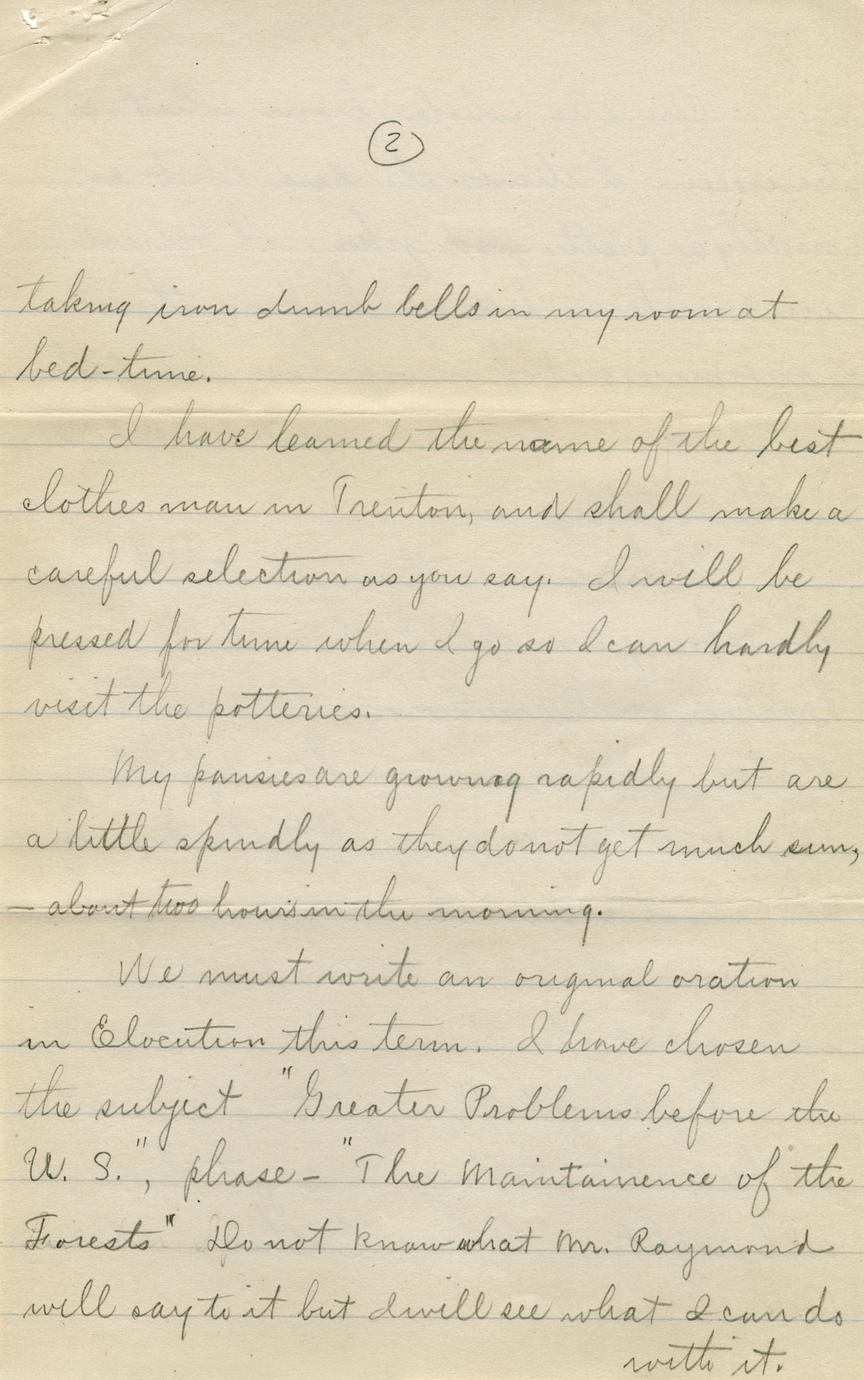 2
taking iron dumb bells in my room at
bed-time.
I have learned the name of the best
clothes man in Trenton, and shall make a
careful selection as you say. I will be
pressed for time when I go so I can hardly
visit the potteries.
My pansies are growing rapidly but are
a little spindly as they do not get much sun,
– about two hours in the morning.
We must write an original oration
in Elocution this term. I have chosen
the subject "Greater Problems before the
U. S.", phase – "The Maintainence of the
Forests" Do not know what Mr. Raymond
will say to it but I will see what I can do
with it.